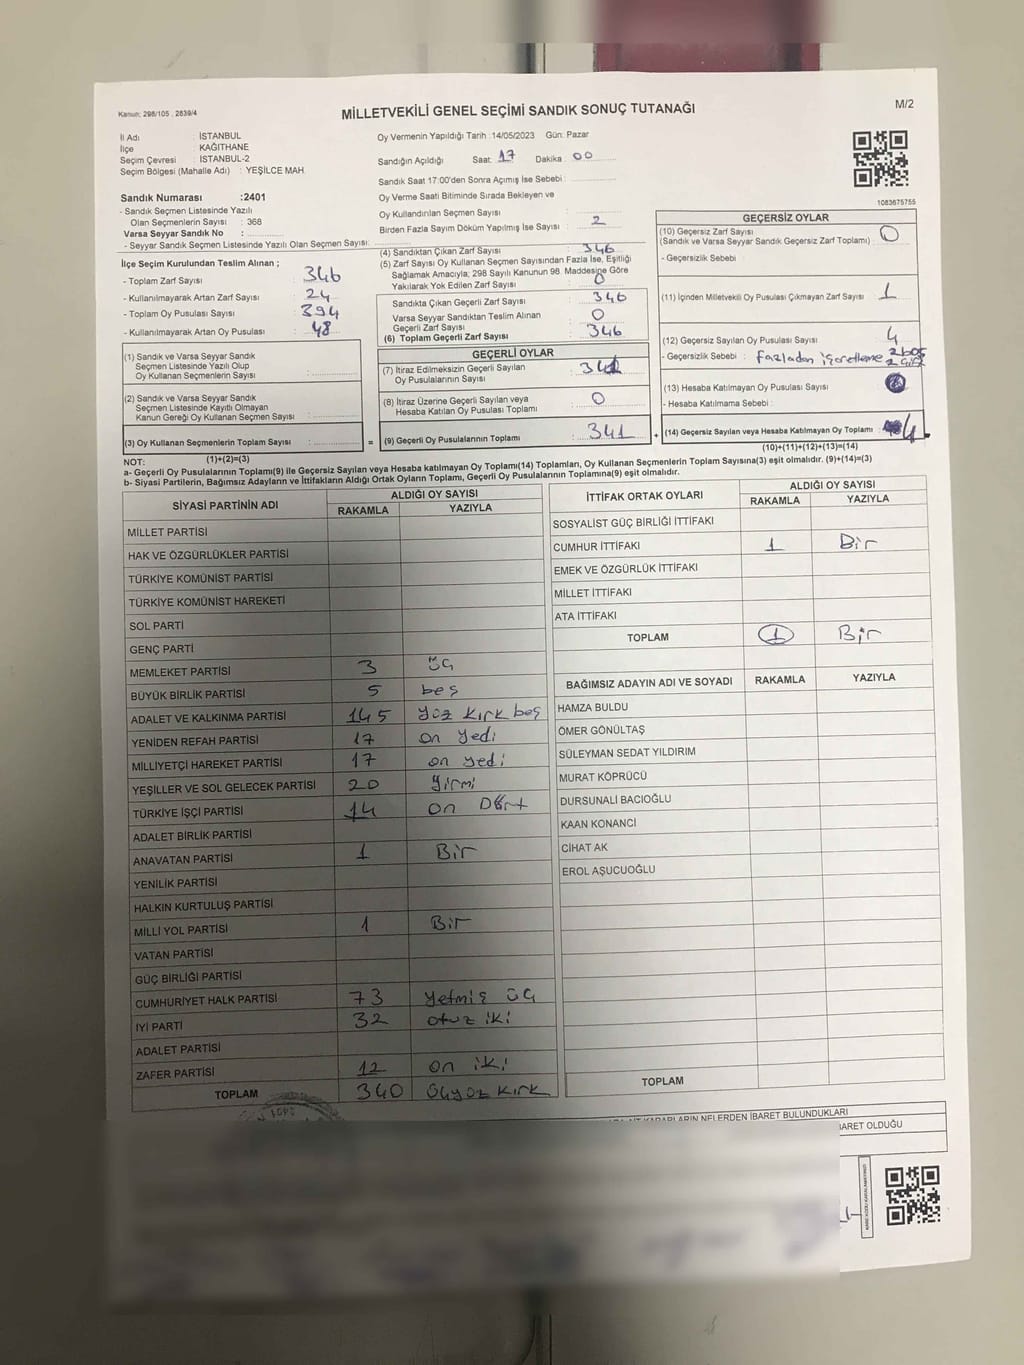 Kanun: 298/105 , 2839/4
MİLLETVEKİLİ GENEL SEÇİMİ SANDIK SONUÇ TUTANAĞI
M/2
İl Adı : İSTANBUL
İlçe KAĞITHANE
Seçim Çevresi : İSTANBUL-2
Seçim Bölgesi (Mahalle Adı) : YEŞİLCE MAH.
Oy Vermenin Yapıldığı Tarih :14/05/2023 Gün: Pazar
Sandığın Açıldığı Saat: 17 Dakika : 00
Sandık Saat 17:00'den Sonra Açımış İse Sebebi :
Oy Verme Saati Bitiminde Sırada Bekleyen ve
Oy Kullandırılan Seçmen Sayısı :
Birden Fazla Sayım Döküm Yapılmış İse Sayısı : 2
Sandık Numarası :2401
- Sandık Seçmen Listesinde Yazılı
Olan Seçmenlerin Sayısı : 368
Varsa Seyyar Sandık No :
- Seyyar Sandık Seçmen Listesinde Yazılı Olan Seçmen Sayısı:
1083675755
İlçe Seçim Kurulundan Teslim Alınan ;
- Toplam Zarf Sayısı : 346
- Kullanılmayarak Artan Zarf Sayısı : 24
- Toplam Oy Pusulası Sayısı : 394
- Kullanılmayarak Artan Oy Pusulası : 48
(1) Sandık ve Varsa Seyyar Sandık
Seçmen Listesinde Yazılı Olup
Oy Kullanan Seçmenlerin Sayısı :
(2) Sandık ve Varsa Seyyar Sandık
Seçmen Listesinde Kayıtlı Olmayan
Kanun Gereği Oy Kullanan Seçmen Sayısı :
(3) Oy Kullanan Seçmenlerin Toplam Sayısı :
(1)+(2)=(3)
(4) Sandıktan Çıkan Zarf Sayısı : 346
(5) Zarf Sayısı Oy Kullanan Seçmen Sayısından Fazla İse, Eşitliği
Sağlamak Amacıyla; 298 Sayılı Kanunun 98. Maddesine Göre
Yakılarak Yok Edilen Zarf Sayısı : 0
Sandıkta Çıkan Geçerli Zarf Sayısı : 346
Varsa Seyyar Sandıktan Teslim Alınan
Geçerli Zarf Sayısı : 0
(6) Toplam Geçerli Zarf Sayısı : 346
GEÇERLİ OYLAR
(7) İtiraz Edilmeksizin Geçerli Sayılan
Oy Pusulalarının Sayısı : 341
(8) İtiraz Üzerine Geçerli Sayılan veya
Hesaba Katılan Oy Pusulası Toplamı : 0
= (9) Geçerli Oy Pusulalarının Toplamı : 341 +
GEÇERSİZ OYLAR
(10) Geçersiz Zarf Sayısı
(Sandık ve Varsa Seyyar Sandık Geçersiz Zarf Toplamı) : 0
- Geçersizlik Sebebi :
(11) İçinden Milletvekili Oy Pusulası Çıkmayan Zarf Sayısı : 1
(12) Geçersiz Sayılan Oy Pusulası Sayısı : 4
- Geçersizlik Sebebi : fazladan işaretleme 2 boş
(13) Hesaba Katılmayan Oy Pusulası Sayısı :
- Hesaba Katılmama Sebebi :
(14) Geçersiz Sayılan veya Hesaba Katılmayan Oy Toplamı : 4
(10)+(11)+(12)+(13)=(14)
NOT:
a- Geçerli Oy Pusulalarının Toplamı(9) ile Geçersiz Sayılan veya Hesaba katılmayan Oy Toplamı(14) Toplamları, Oy Kullanan Seçmenlerin Toplam Sayısına(3) eşit olmalıdır. (9)+(14)=(3)
b- Siyasi Partilerin, Bağımsız Adayların ve İttifakların Aldığı Ortak Oyların Toplamı, Geçerli Oy Pusulalarının Toplamına(9) eşit olmalıdır.
SİYASİ PARTİNİN ADI ALDIĞI OY SAYISI
RAKAMLA YAZIYLA
MİLLET PARTİSİ
HAK VE ÖZGÜRLÜKLER PARTİSİ
TÜRKİYE KOMÜNİST PARTİSİ
TÜRKİYE KOMÜNİST HAREKETİ
SOL PARTİ
GENÇ PARTİ
MEMLEKET PARTİSİ 3 üç
BÜYÜK BİRLİK PARTİSİ 5 beş
ADALET VE KALKINMA PARTİSİ 145 yüz kırk beş
YENİDEN REFAH PARTİSİ 17 on yedi
MİLLİYETÇİ HAREKET PARTİSİ 17 on yedi
YEŞİLLER VE SOL GELECEK PARTİSİ 20 yirmi
TÜRKİYE İŞÇİ PARTİSİ 14 on Dört
ADALET BİRLİK PARTİSİ
ANAVATAN PARTİSİ 1 Bir
YENİLİK PARTİSİ
HALKIN KURTULUŞ PARTİSİ
MİLLİ YOL PARTİSİ 1 Bir
VATAN PARTİSİ
GÜÇ BİRLİĞİ PARTİSİ
CUMHURİYET HALK PARTİSİ 73 yetmiş üç
İYİ PARTİ 32 otuz iki
ADALET PARTİSİ
ZAFER PARTİSİ 12 on iki
TOPLAM 340 üçyüz kırk
İTTİFAK ORTAK OYLARI ALDIĞI OY SAYISI
RAKAMLA YAZIYLA
SOSYALİST GÜÇ BİRLİĞİ İTTİFAKI
CUMHUR İTTİFAKI 1 Bir
EMEK VE ÖZGÜRLÜK İTTİFAKI
MİLLET İTTİFAKI
ATA İTTİFAKI
TOPLAM 1 Bir
BAĞIMSIZ ADAYIN ADI VE SOYADI RAKAMLA YAZIYLA
HAMZA BULDU
ÖMER GÖNÜLTAŞ
SÜLEYMAN SEDAT YILDIRIM
MURAT KÖPRÜCÜ
DURSUNALİ BACIOĞLU
KAAN KONANCI
CİHAT AK
EROL AŞUCUOĞLU
TOPLAM
KARARLARIN NELERDEN İBARET BULUNDUKLARI
İBARET OLDUĞU